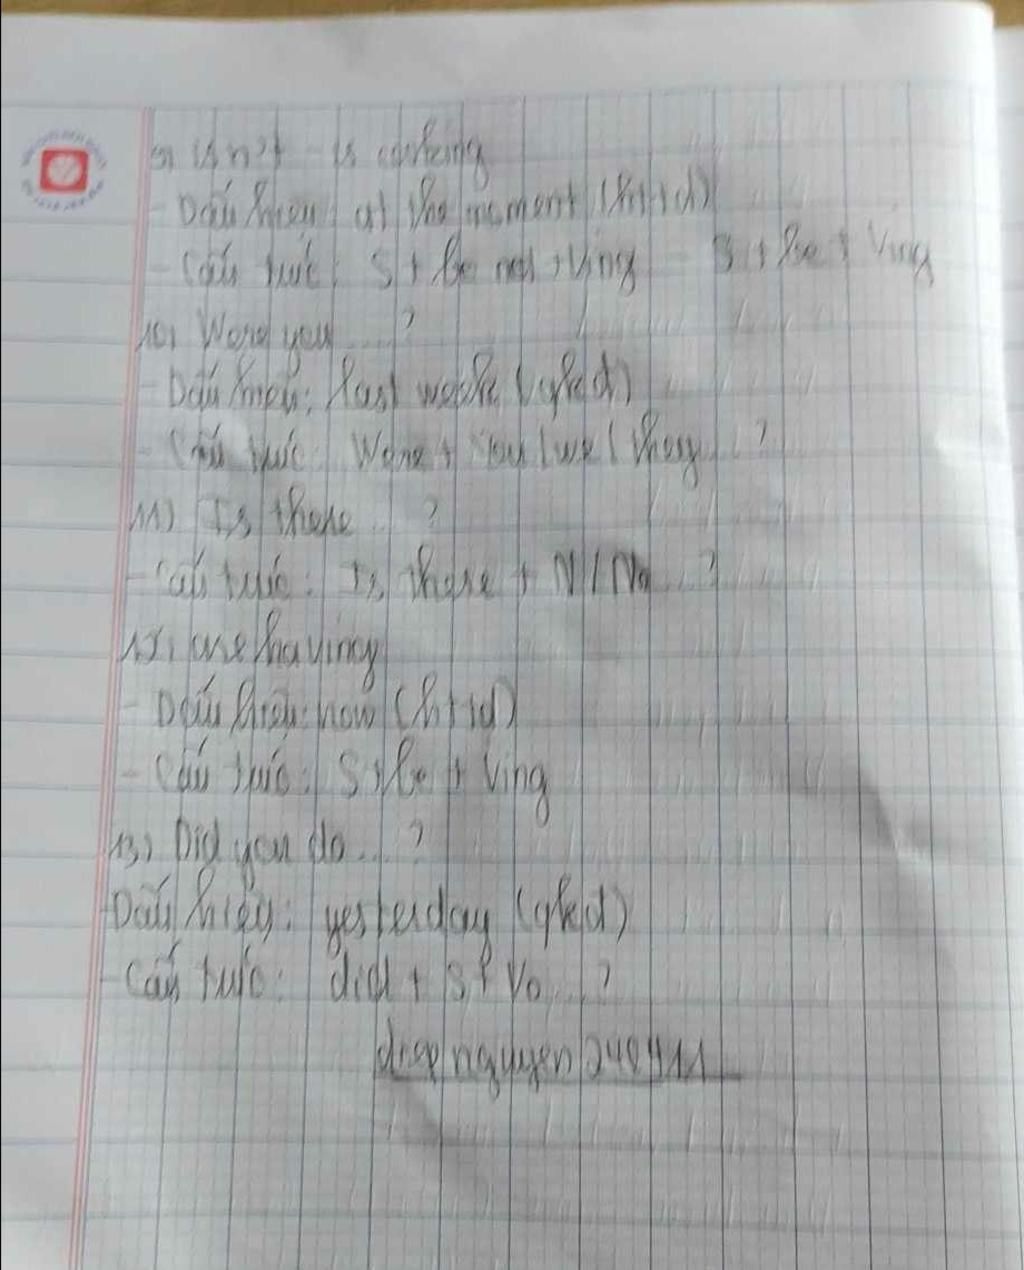 9) isn't - is cooking
- Dấu hiệu: at the moment (httd)
- Cấu trúc: S + be not + Ving - S + be + Ving
10) Were you ...?
- Dấu hiệu: last week (qkđ)
- Cấu trúc: Were + you/we/they...?
11) Is there ...?
- Cấu trúc: Is there + N/N...?
12) are having
- Dấu hiệu: now (httd)
- Cấu trúc: S + be + Ving
13) Did you do...?
Dấu hiệu: yesterday (qkđ)
- Cấu trúc: did + S + Vo...?
diepnguyen240411